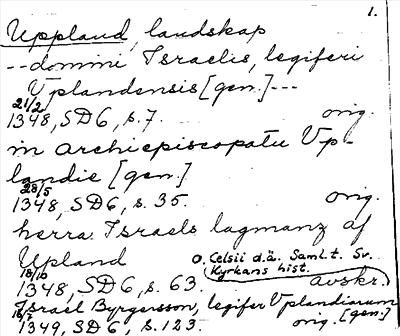 1.
Uppland, landskap
-- domini Israelis, legiferi
Vplandensis [gen.] ---
21/2
1348, SD6, s. 7. orig.
in archiepiscopatu Vp-
landie [gen.]
28/5
1348, SD6, s. 35. orig.
herra Israels lagmanz af
Upland o. Celsii d.ä. Saml. t. Sv.
Kyrkans hist.
18/10
1348, SD6, s. 63. avskr.
Israel Byrgersson, legifer Vplandiarum
1349, SD6, s. 123. orig. [gen.]